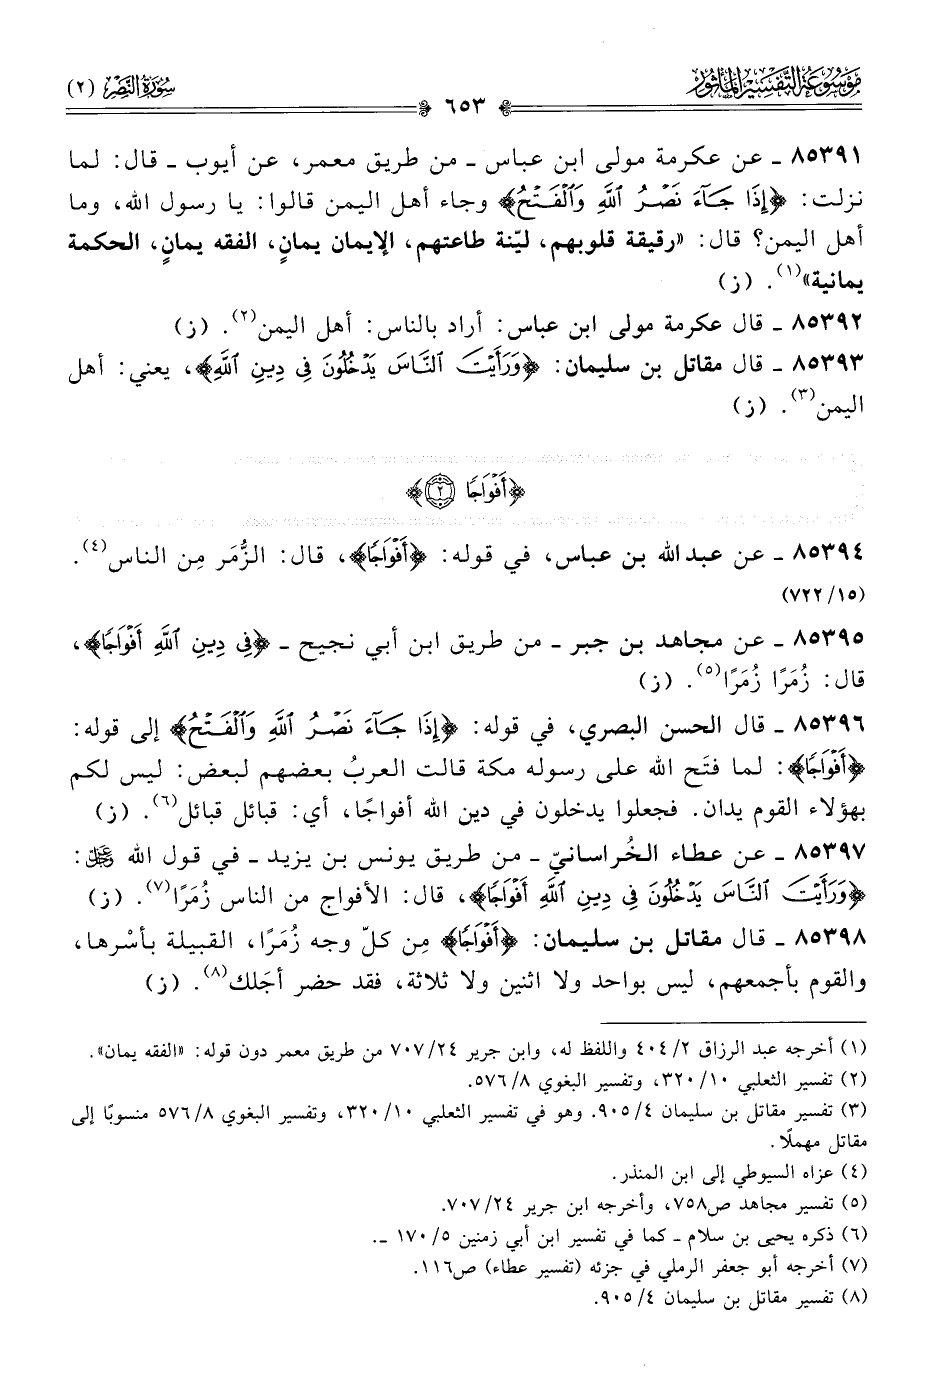 موسوعة التفسير المأثور
سورة النصر (٢)
٦٥٣
٨٥٣٩١ ـ عن عكرمة مولى ابن عباس ـ من طريق معمر، عن أيوب ـ قال: لما
نزلت: ﴿إِذَا جَآءَ نَصْرُ ٱللَّهِ وَٱلْفَتْحُ﴾ وجاء أهل اليمن قالوا: يا رسول الله، وما
أهل اليمن؟ قال: «رقيقة قلوبهم، ليّنة طاعتهم، الإيمان يمانٍ، الفقه يمانٍ، الحكمة
يمانية»(١). (ز)
٨٥٣٩٢ ـ قال عكرمة مولى ابن عباس: أراد بالناس: أهل اليمن(٢). (ز)
٨٥٣٩٣ ـ قال مقاتل بن سليمان: ﴿وَرَأَيْتَ ٱلنَّاسَ يَدْخُلُونَ فِى دِينِ ٱللَّهِ﴾، يعني: أهل
اليمن(٣). (ز)
﴿أَفْوَاجًا ٢﴾
٨٥٣٩٤ ـ عن عبد الله بن عباس، في قوله: ﴿أَفْوَاجًا﴾، قال: الزُّمَر مِن الناس(٤).
(١٥/ ٧٢٢)
٨٥٣٩٥ ـ عن مجاهد بن جبر ـ من طريق ابن أبي نجيح ـ ﴿فِى دِينِ ٱللَّهِ أَفْوَاجًا﴾،
قال: زُمَرًا زُمَرًا(٥). (ز)
٨٥٣٩٦ ـ قال الحسن البصري، في قوله: ﴿إِذَا جَآءَ نَصْرُ ٱللَّهِ وَٱلْفَتْحُ﴾ إلى قوله:
﴿أَفْوَاجًا﴾: لما فتَح الله على رسوله مكة قالت العربُ بعضهم لبعض: ليس لكم
بهؤلاء القوم يدان. فجعلوا يدخلون في دين الله أفواجًا، أي: قبائل قبائل(٦). (ز)
٨٥٣٩٧ ـ عن عطاء الخُراسانيّ ـ من طريق يونس بن يزيد ـ في قول الله ﷿:
﴿وَرَأَيْتَ ٱلنَّاسَ يَدْخُلُونَ فِى دِينِ ٱللَّهِ أَفْوَاجًا﴾، قال: الأفواج من الناس زُمَرًا(٧). (ز)
٨٥٣٩٨ ـ قال مقاتل بن سليمان: ﴿أَفْوَاجًا﴾ مِن كلّ وجه زُمَرًا، القبيلة بأسْرها،
والقوم بأجمعهم، ليس بواحد ولا اثنين ولا ثلاثة، فقد حضر أجَلك(٨). (ز)
(١) أخرجه عبد الرزاق ٢/ ٤٠٤ واللفظ له، وابن جرير ٢٤/ ٧٠٧ من طريق معمر دون قوله: «الفقه يمان».
(٢) تفسير الثعلبي ١٠/ ٣٢٠، وتفسير البغوي ٨/ ٥٧٦.
(٣) تفسير مقاتل بن سليمان ٤/ ٩٠٥. وهو في تفسير الثعلبي ١٠/ ٣٢٠، وتفسير البغوي ٨/ ٥٧٦ منسوبًا إلى
مقاتل مهملًا.
(٤) عزاه السيوطي إلى ابن المنذر.
(٥) تفسير مجاهد ص٧٥٨، وأخرجه ابن جرير ٢٤/ ٧٠٧.
(٦) ذكره يحيى بن سلام ـ كما في تفسير ابن أبي زمنين ٥/ ١٧٠ ـ.
(٧) أخرجه أبو جعفر الرملي في جزئه (تفسير عطاء) ص١١٦.
(٨) تفسير مقاتل بن سليمان ٤/ ٩٠٥.